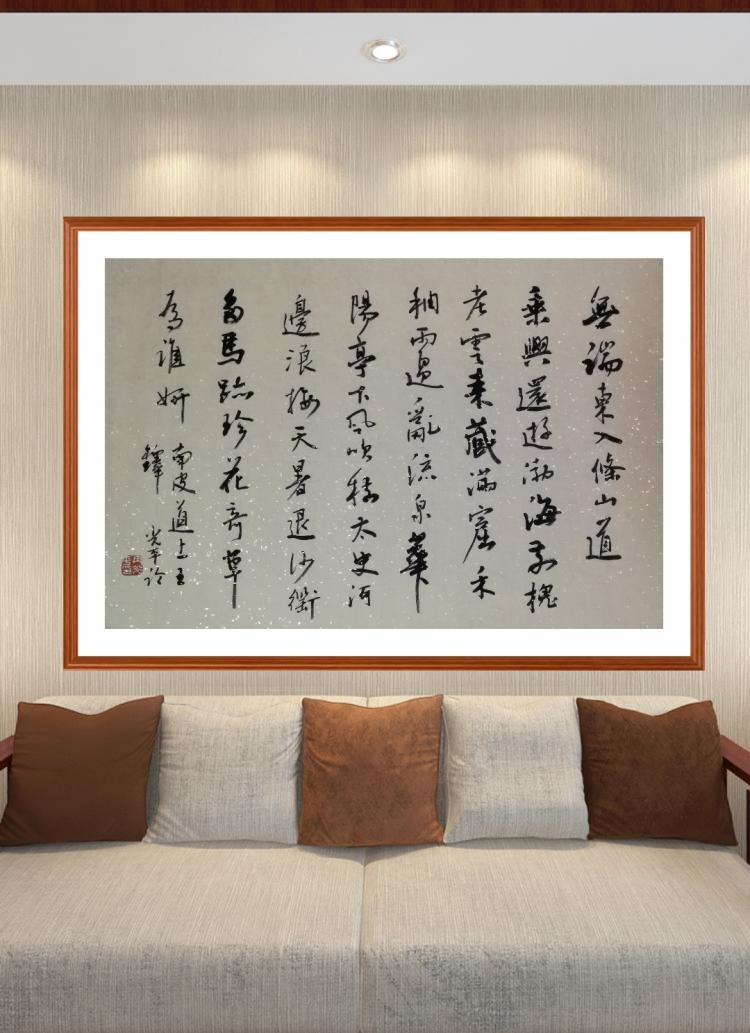 無端東入條山道
乘興還遊渤海前槐
老雲來藏滿窟禾
秞雨過亂流泉華
陽亭下風吹穗太史河
邊浪接天暑退沙衝
留馬跡珍花奇草
為誰妍
南皮道上王
鐸